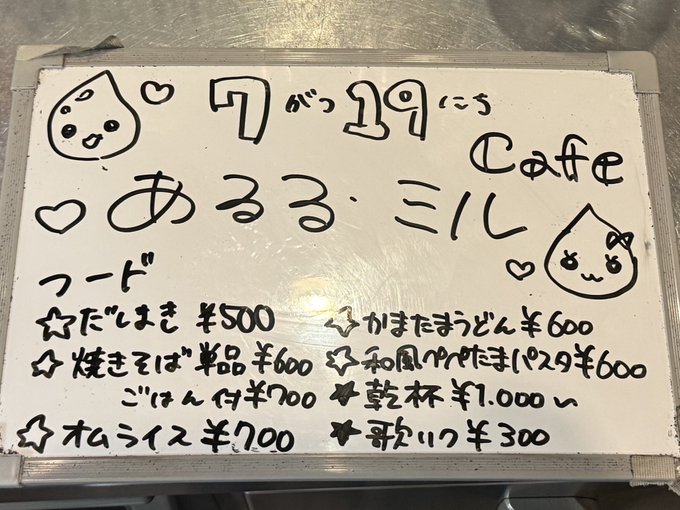 7がつ19にち
Cafe
あるる・ミル
フード
☆だしまき ¥500
☆焼きそば単品¥600
ごはん付¥700
☆オムライス¥700
☆かまたまうどん¥600
☆和風ペペたまパスタ¥600
★乾杯¥1.000〜
★歌リク¥300